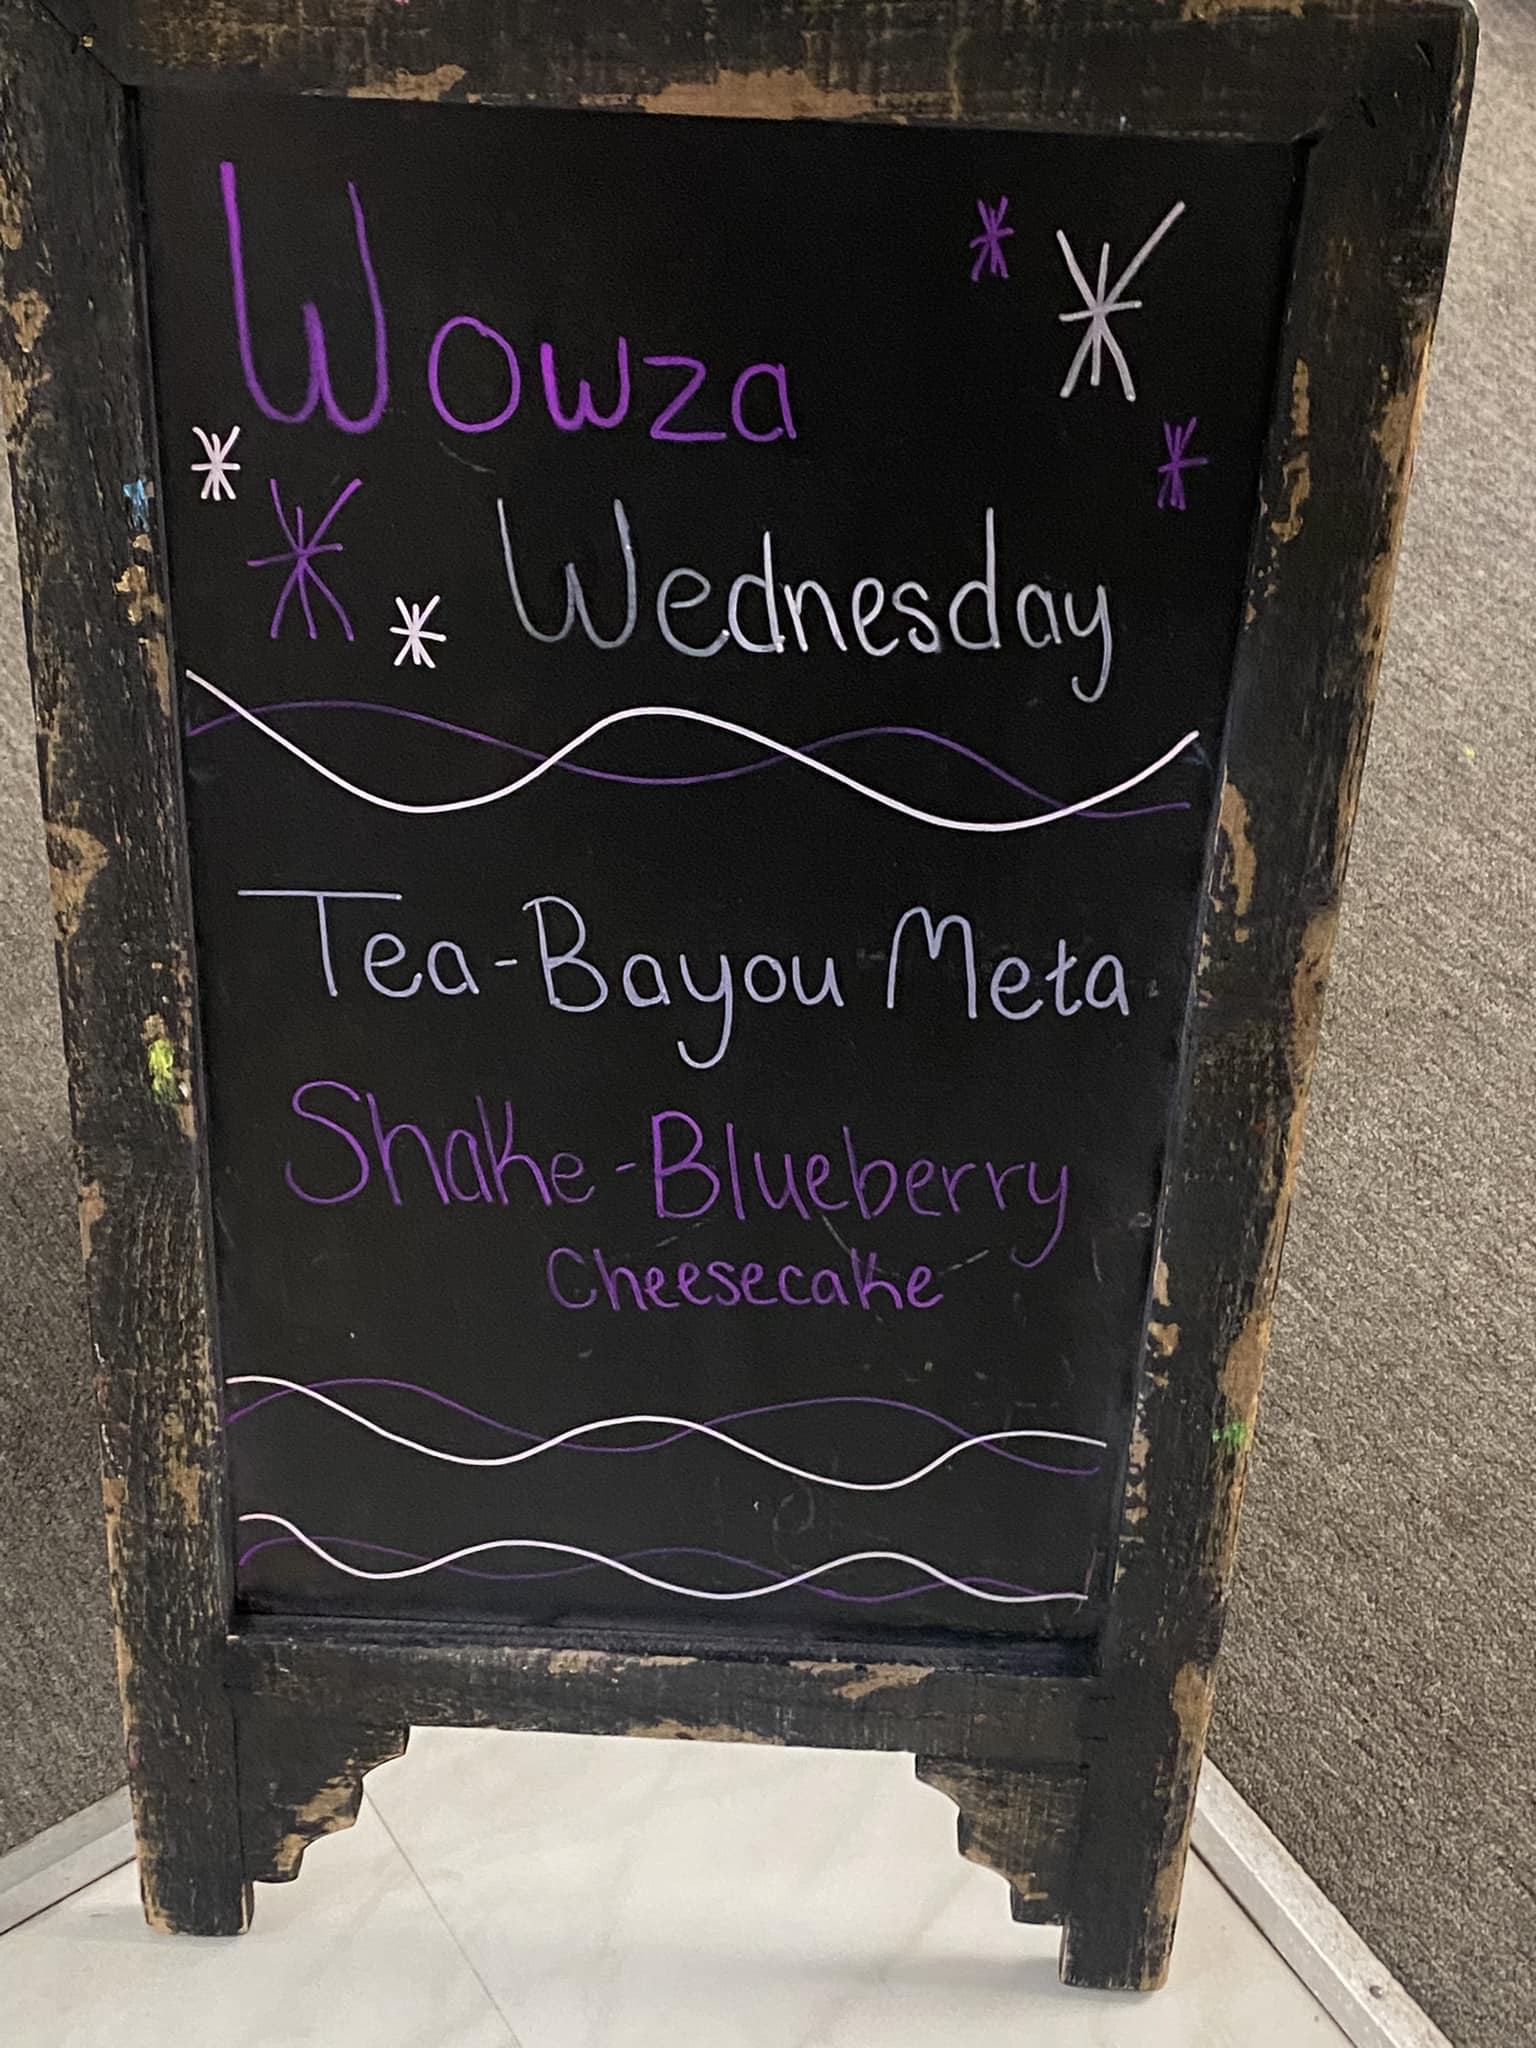 Wowza
Wednesday
Tea-Bayou Meta
Shake-Blueberry
Cheesecake